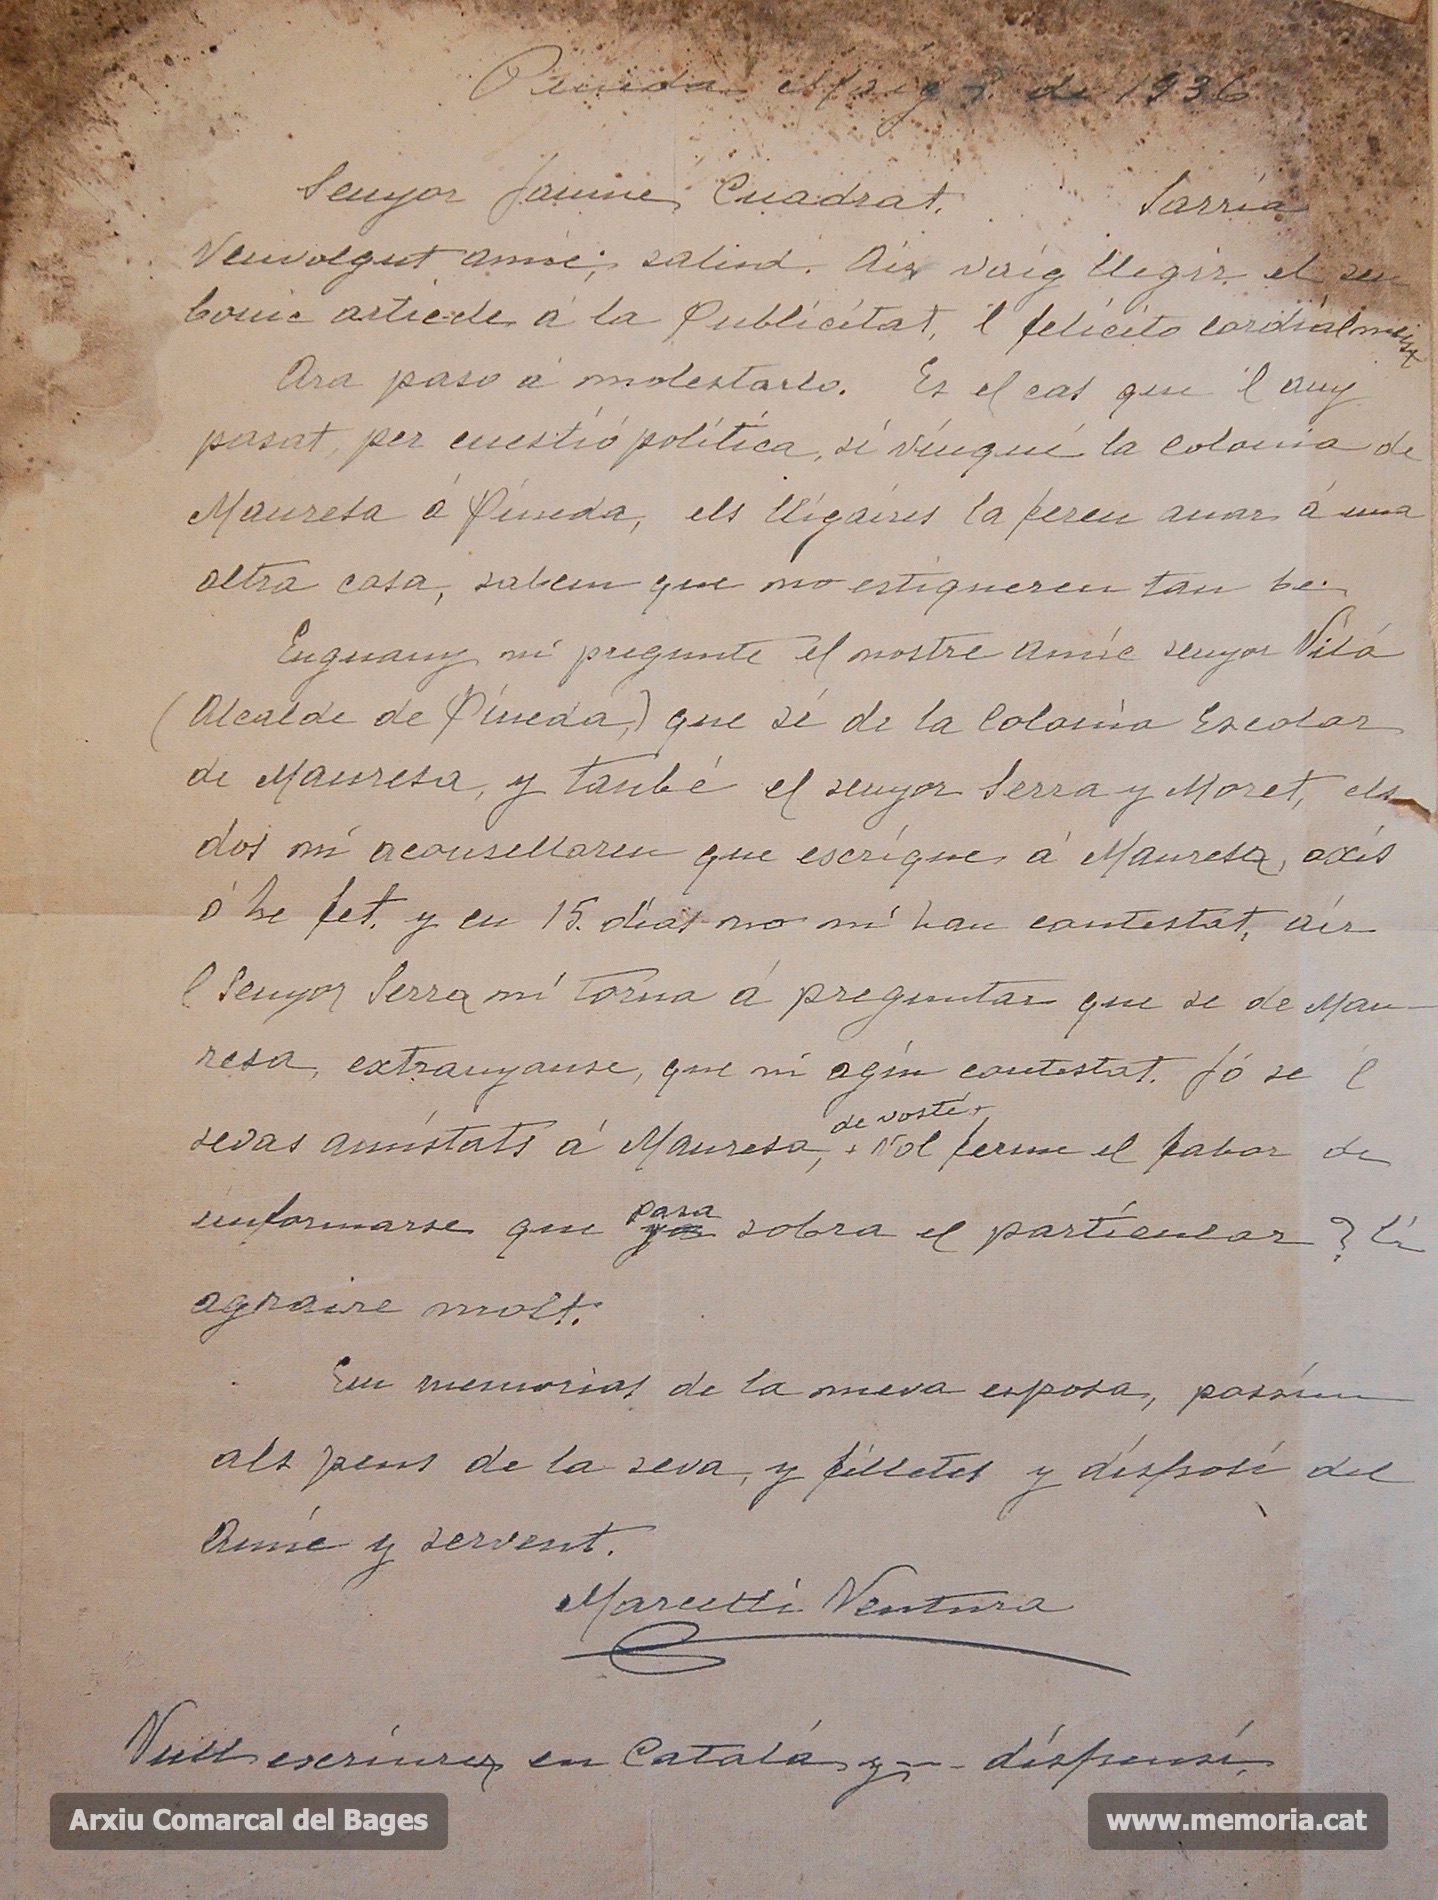 Pineda de 1936
Senyor Jaume Cuadrat. Sarria
Venvolgut amic; salud. Air vaig llegir el seu
bonic article á la Publicitat, l felicito cordialment
Ara paso á molestarlo. Es el cas que l any
pasat, per cuestió política, sí vingué la colonia de
Manresa á Pineda, els lligáires la feren anar á una
altra casa, sabem que no estigueren tan be.
Enguany mi pregunte el nostre amic senyor Vilá
(Alcalde de Pineda,) que sé de la Colonia Escolar
de Manresa, y també el senyor Serra y Moret, els
dos mi aconsellaren que escrigues á Manresa, axis
ó he fet. y en 15. dias no mi han contestat, air
l Senyor Serra mi torna á preguntar que se de Man-
resa, extranyanse, que ni agin contestat. Jó se l
sevas amistats á Manresa, + Vol ferme el fabor de
de vosté +
informarse que pasa sobra el particular? Li
agraire molt.
Em memorias de la meva esposa, possim
als peus de la seva, y filletes y disposi del
Amic y servent.
Marcelli Ventura
Vull escriurer en Catalá y - dispensi.
Arxiu Comarcal del Bages
www.memoria.cat